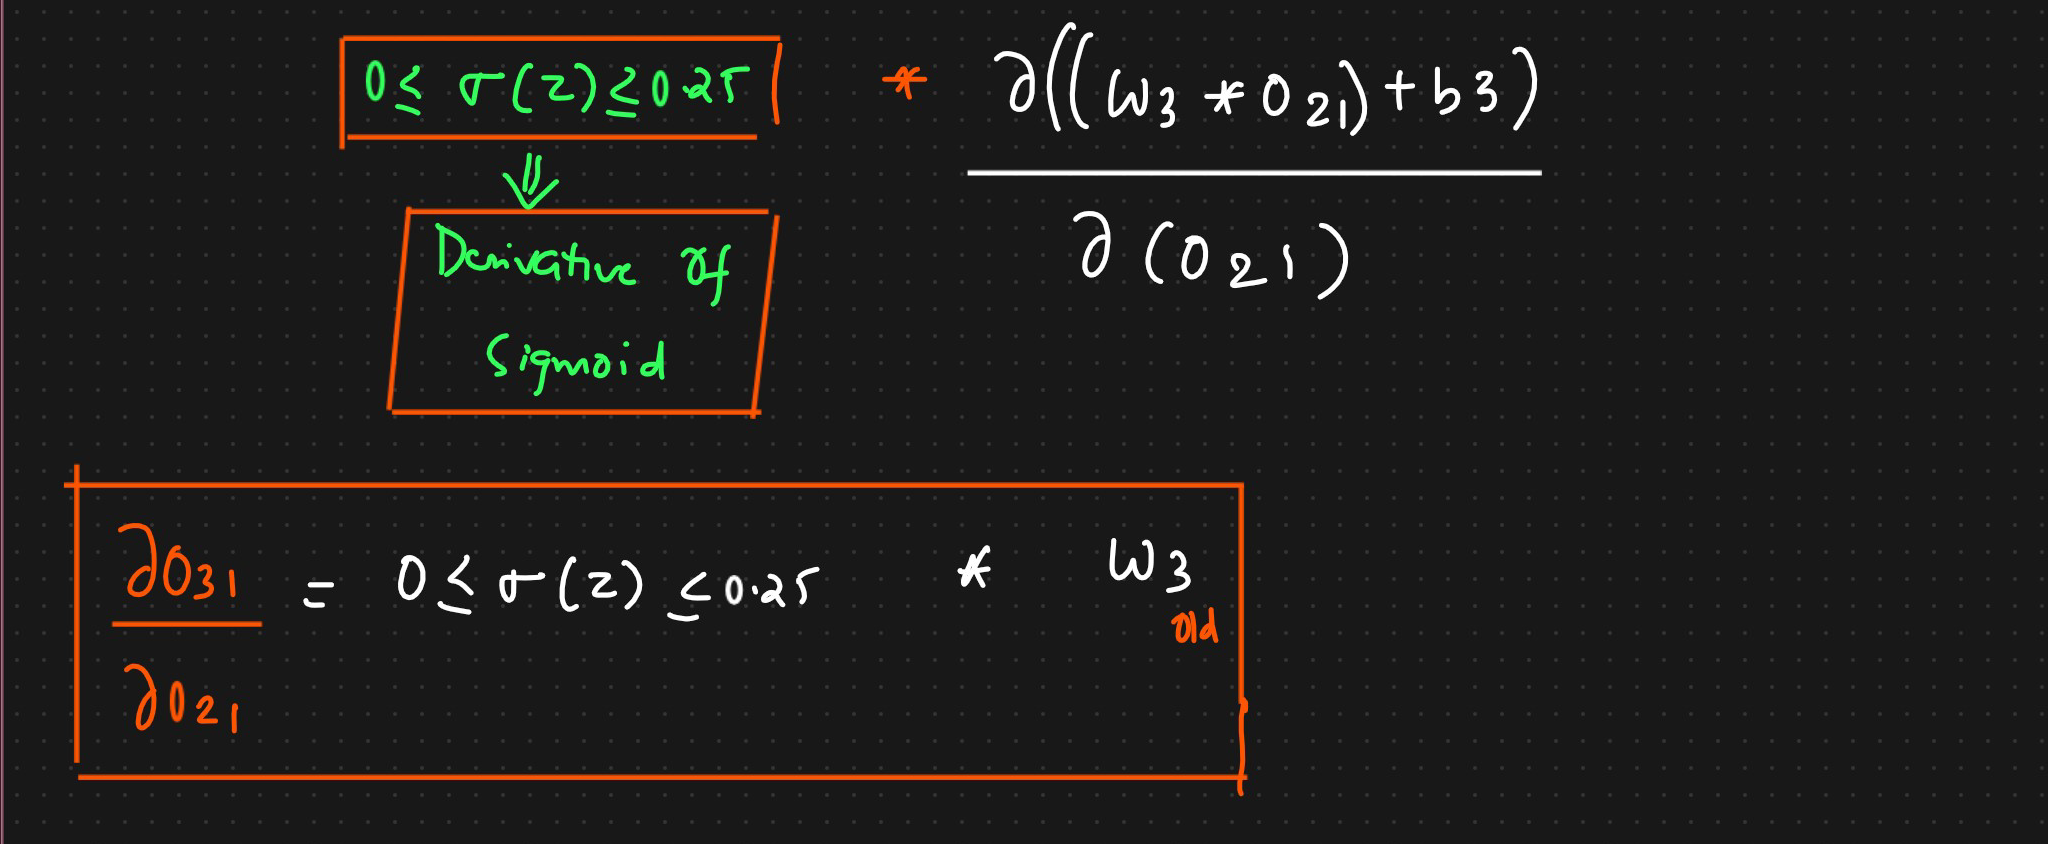 0 ≤ σ(z) ≥ 0.25 * ∂((w3 * O21) + b3)
∂(O21)
Derivative of
Sigmoid
∂O31 = 0 ≤ σ(z) ≤ 0.25 * w3
old
∂O21